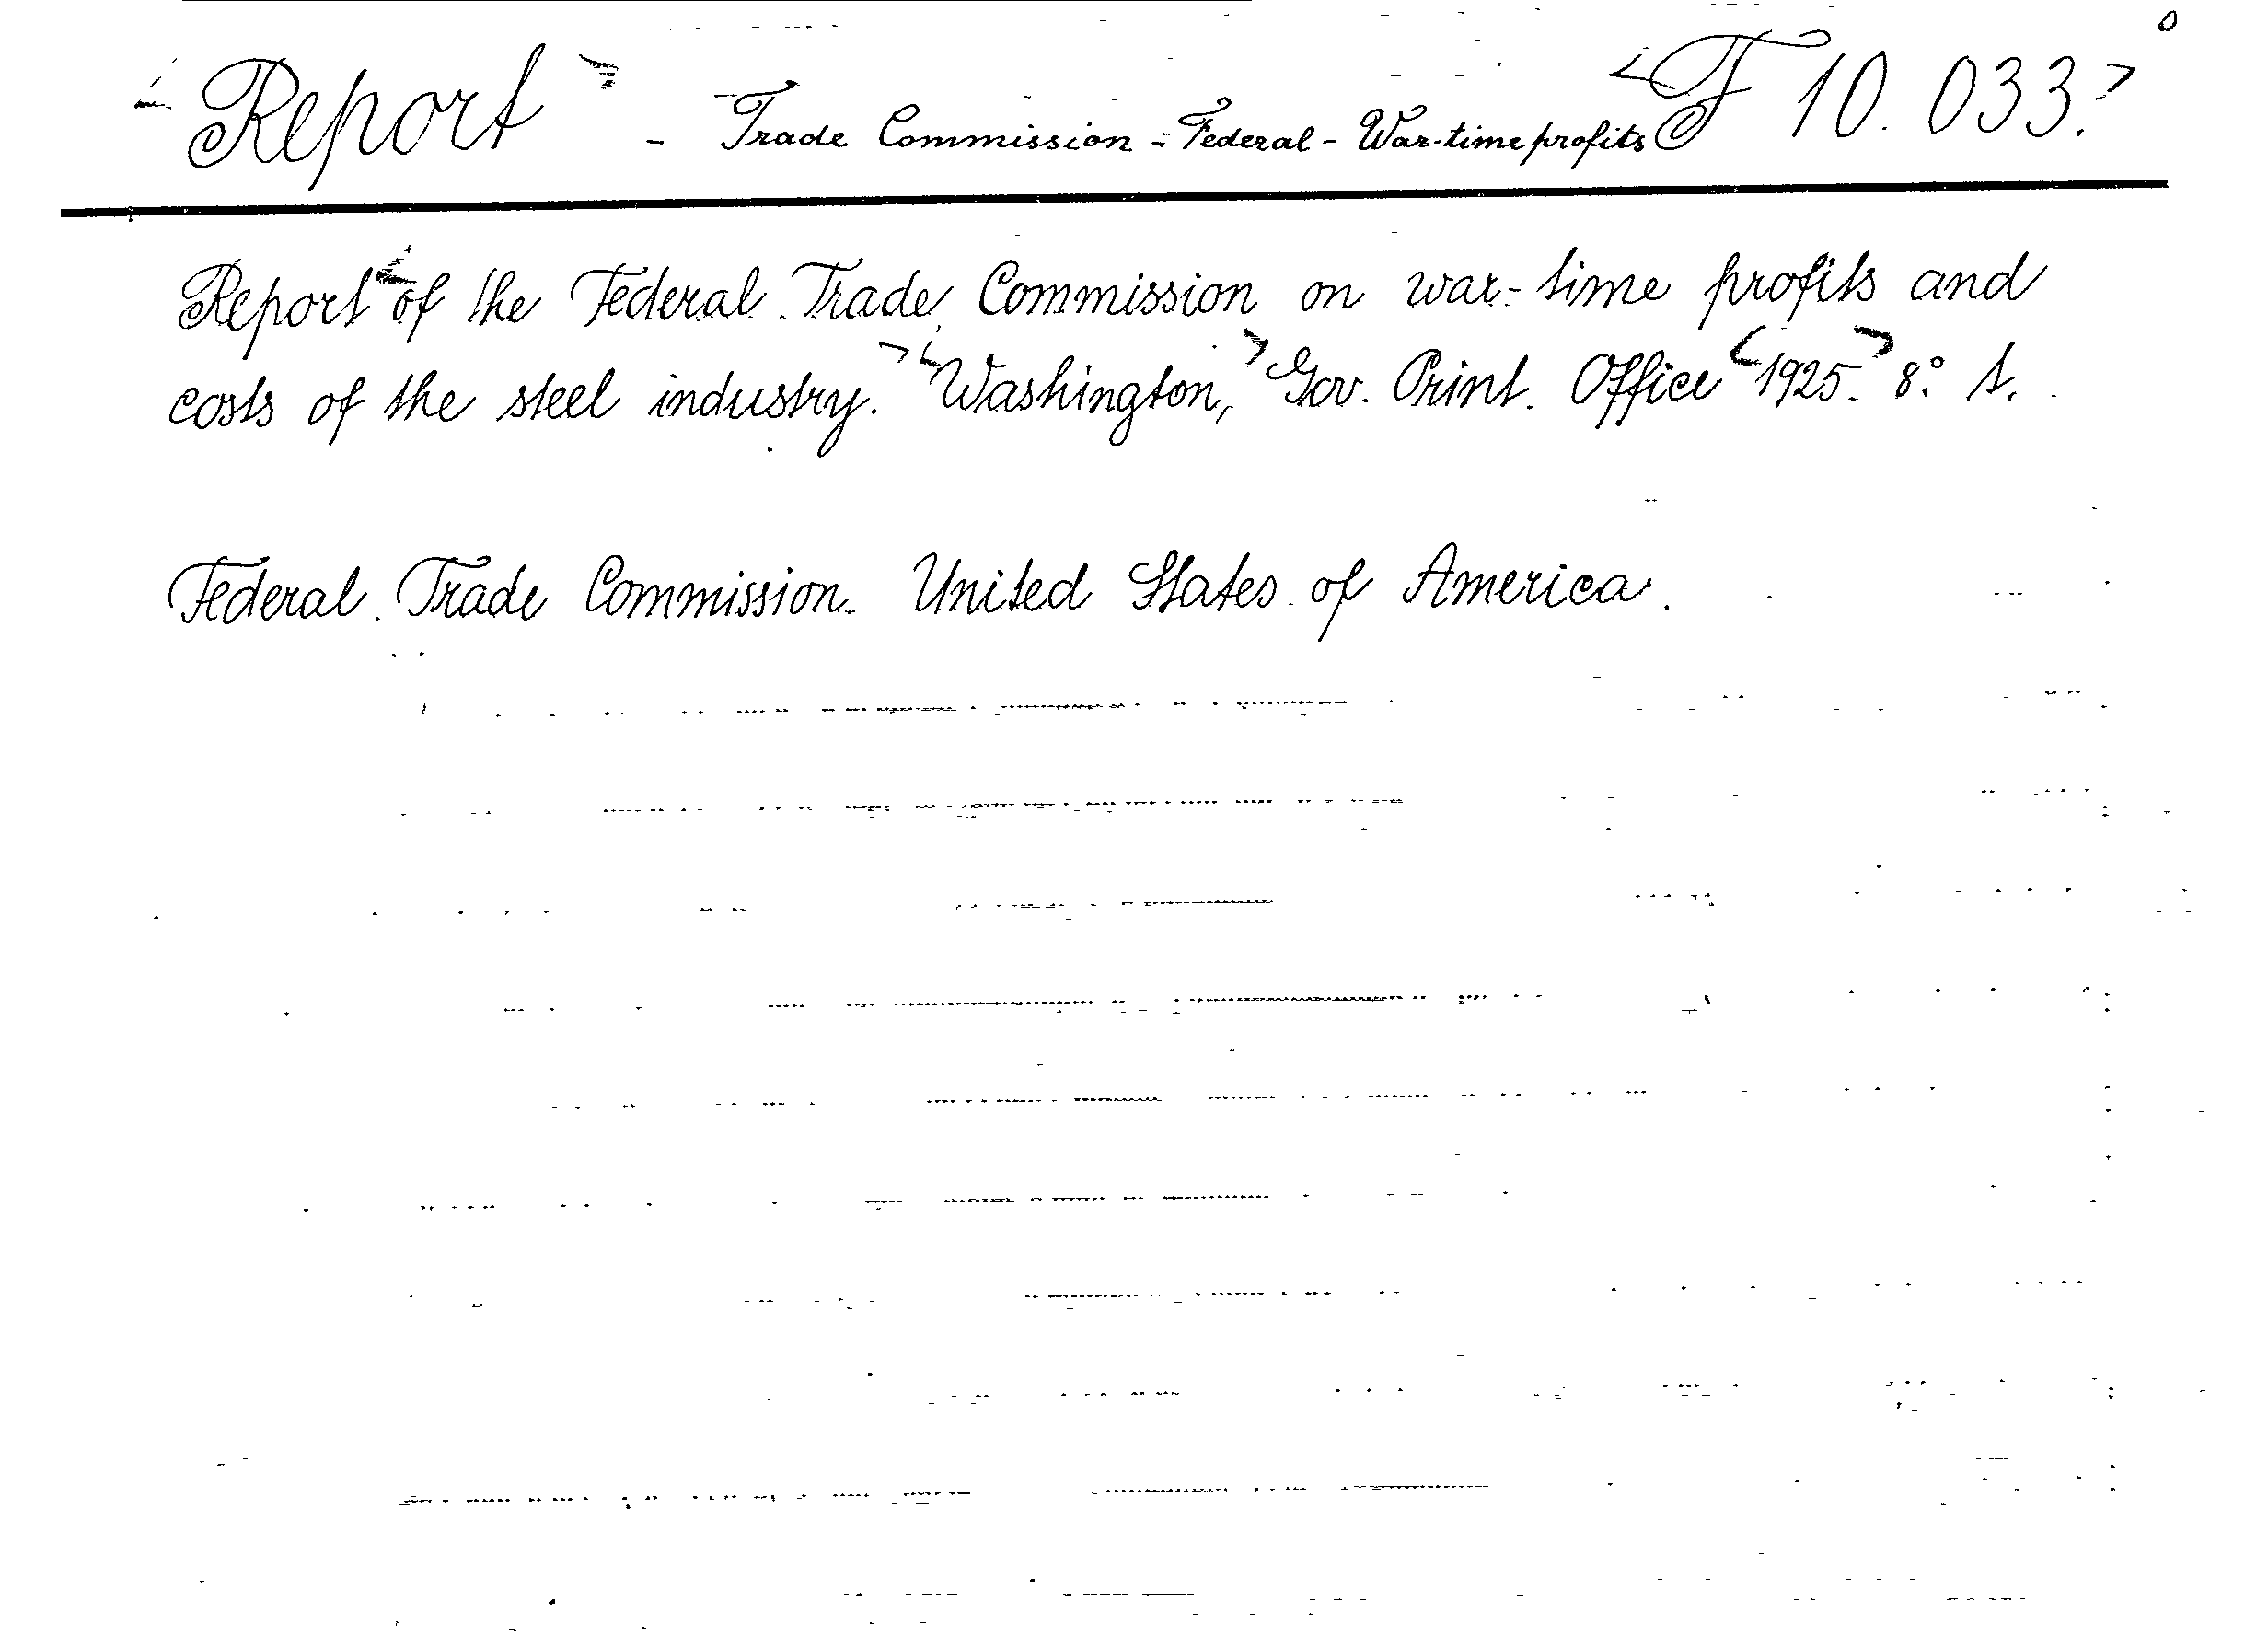 Report - Trade Commission - Federal - War-time profits F 10.033.
Report of the Federal Trade Commission on war-time profits and
costs of the steel industry. Washington, Gov. Print. Office 1925. 8° t.
Federal Trade Commission. United States of America.